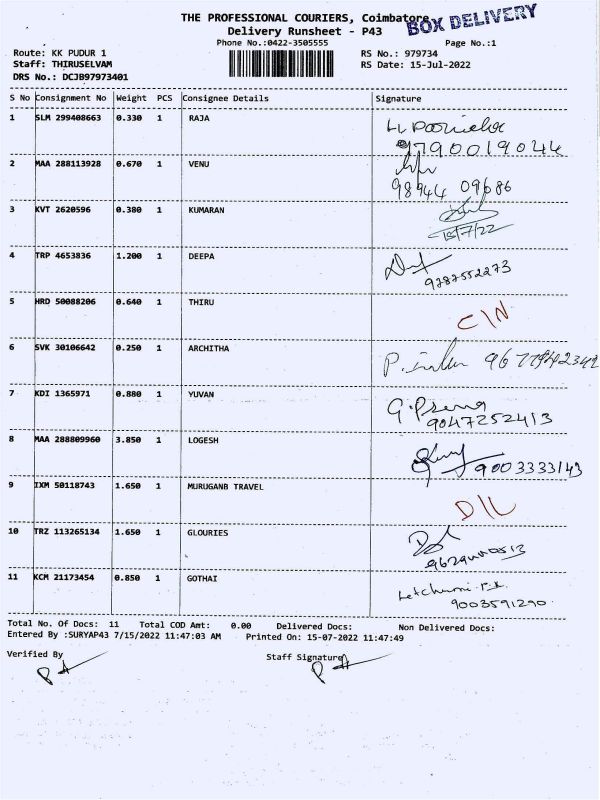 THE PROFESSIONAL COURIERS, Coimbatore
BOX DELIVERY
Delivery Runsheet - P43
Phone No.:0422-3505555
Page No.:1
Route: KK PUDUR 1
RS No.: 979734
Staff: THIRUSELVAM
RS Date: 15-Jul-2022
DRS No.: DCJB97973401
S No Consignment No Weight PCS Consignee Details Signature
1 SLM 299408663 0.330 1 RAJA
9790019044
2 MAA 288113928 0.670 1 VENU
98944 09686
3 KVT 2620596 0.380 1 KUMARAN
15/7/22
4 TRP 4653836 1.200 1 DEEPA
9787552273
5 HRD 50088206 0.640 1 THIRU
C/N
6 SVK 30106642 0.250 1 ARCHITHA
7 KDI 1365971 0.880 1 YUVAN
9047252413
8 MAA 288809960 3.850 1 LOGESH
9003333143
9 IXM 50118743 1.650 1 MURUGANB TRAVEL
D/L
10 TRZ 113265134 1.650 1 GLOURIES
11 KCM 21173454 0.850 1 GOTHAI
Letchumi.P.K.
9003591290
Total No. Of Docs: 11 Total COD Amt: 0.00 Delivered Docs: Non Delivered Docs:
Entered By :SURYAP43 7/15/2022 11:47:03 AM Printed On: 15-07-2022 11:47:49
Verified By Staff Signature